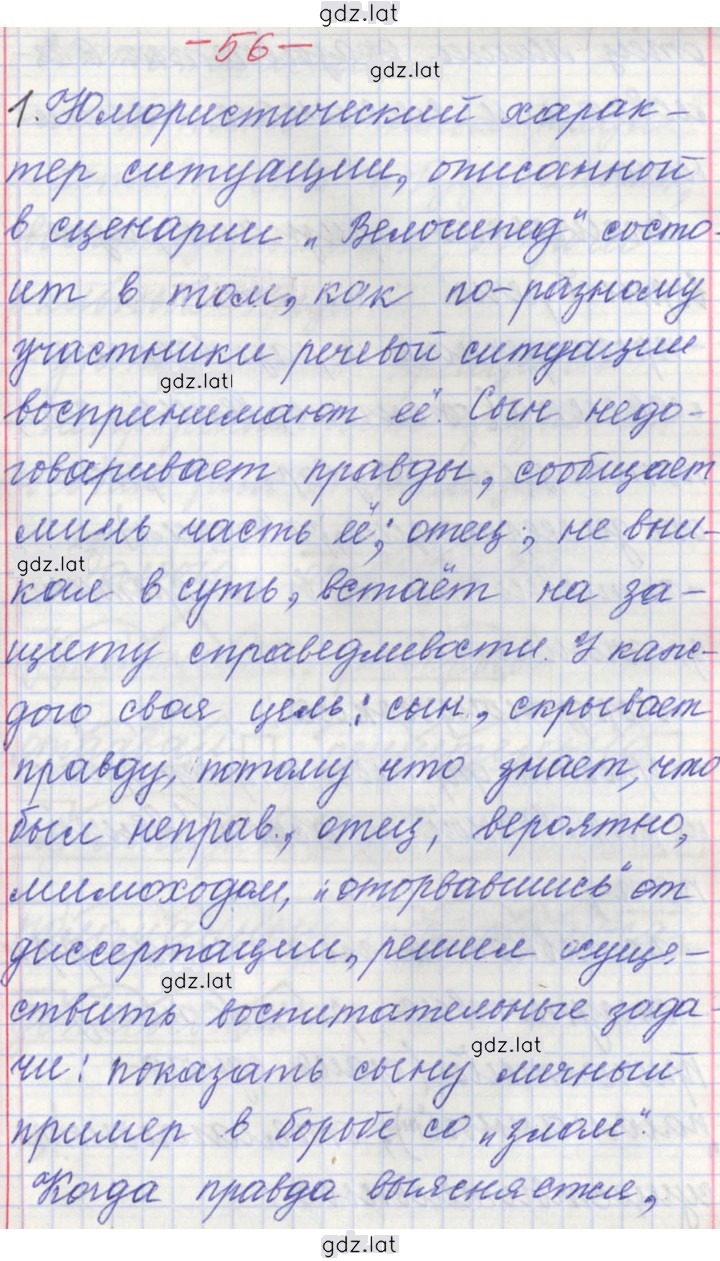 gdz.lat
-56-
gdz.lat
1. Юмористический харак-
тер ситуации, описанной
в сценарии „Велосипед" состо-
ит в том, как по-разному
участники речевой ситуации
gdz.lat
воспринимают её. Сын недо-
говаривает правды, сообщает
лишь часть её; отец, не вни-
gdz.lat
кая в суть, встаёт на за-
щиту справедливости. У каж-
дого своя цель: сын, скрывает
правду, потому что знает, что
был неправ., отец, вероятно,
мимоходом, „оторвавшись" от
диссертации, решил осуще-
gdz.lat
ствить воспитательные зада-
gdz.lat
чи: показать сыну личный
пример в борьбе со „злом".
Когда правда выясняется,
gdz.lat